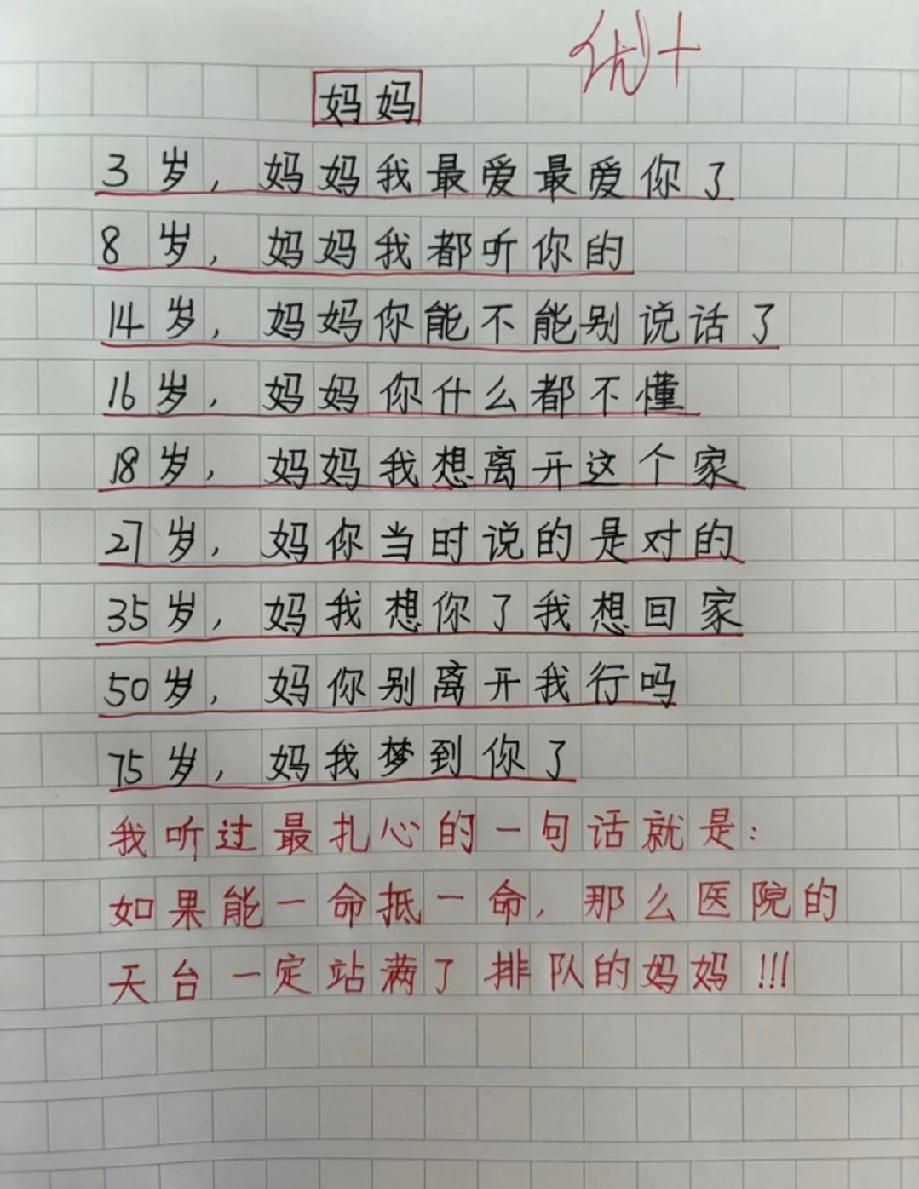 优+
妈妈
3岁，妈妈我最爱最爱你了
8岁，妈妈我都听你的
14岁，妈妈你能不能别说话了
16岁，妈妈你什么都不懂
18岁，妈妈我想离开这个家
27岁，妈你当时说的是对的
35岁，妈我想你了我想回家
50岁，妈你别离开我行吗
75岁，妈我梦到你了
我听过最扎心的一句话就是：
如果能一命抵一命，那么医院的
天台一定站满了排队的妈妈!!!